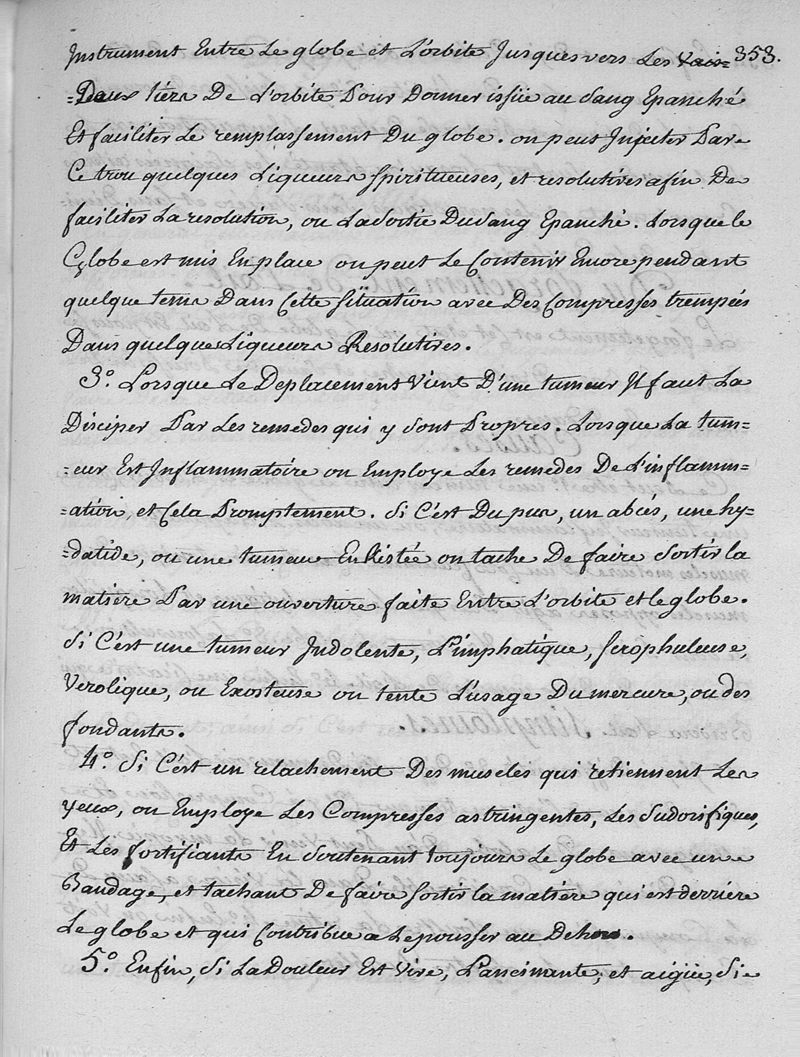 353.
Instrument Entre Le globe et L'orbite Jusques vers Les
=Deux tiers De L'orbite Pour Donner issüe au Sang Epanché
Et faciliter Le remplassement Du globe. on peut Injecter Par
Ce trou quelques Liqueurs Spiritueuses, et resolutives afin De
faciliter La resolution, ou La Sortie Du Sang Epanché. Lorsque le
Globe est mis En place on peut Le Contenir Encore pendant
quelque tems Dans Cette Situation avec Des Compresses trempées
Dans quelque Liqueurs Resolutives.
3.° Lorsque Le Deplacement Vient D'une tumeur Il faut La
Disciper Par Les remedes qui y Sont Propres. Lorsque La tum=
=eur Est Inflammatoire on Employe Les remedes De L'inflamm=
=ation, et Cela Promptement. Si C'est Du pus, un abcés, une hy=
=datide, ou une tumeur Enkistée on tache De faire Sortir la
matiere Par une ouverture faite Entre L'orbite et le globe.
Si C'est une tumeur Indolente, L'imphatique, Scrophuleuse,
Verolique, ou Exosteuse on tente L'usage Du mercure, ou des
fondants.
4.° Si C'est un relachement Des muscles qui retiennent Les
yeux, on Employe Les Compresses astringentes, Les Sudorifiques,
Et Les fortifiants En Soutenant toujours Le globe avec une
Bandage, et tachant De faire Sortir la matiere qui est derriere
Le globe et qui Contribue a Le pousser au Dehors.
5.° Enfin, Si La Douleur Est Vive, L'ancinante, et aigüe, Si